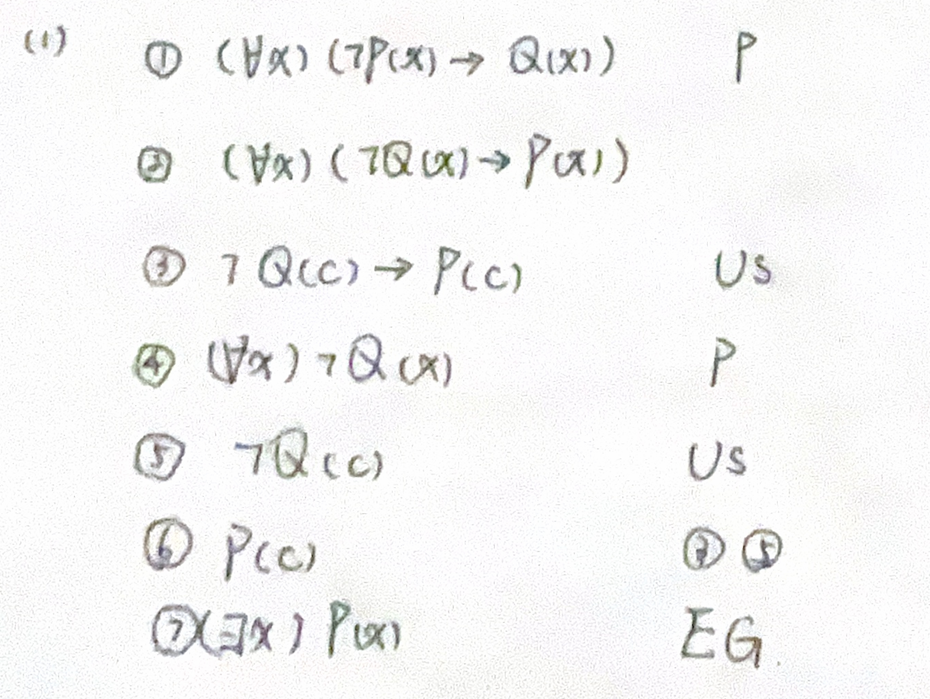 (1) ① (∀x) (¬P(x) → Q(x)) P
② (∀x) (¬Q(x) → P(x))
③ ¬Q(c) → P(c) US
④ (∀x) ¬Q(x) P
⑤ ¬Q(c) US
⑥ P(c) ③ ⑤
⑦ (∃x) P(x) EG.